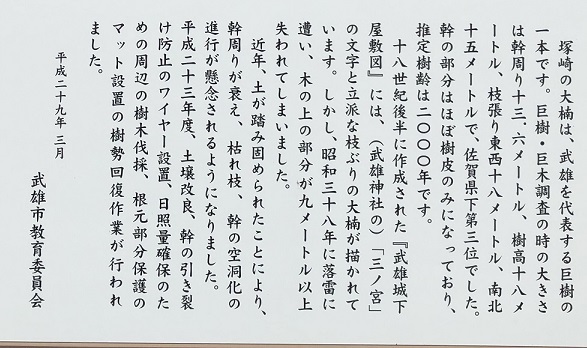 塚崎の大楠は、武雄を代表する巨樹の
一本です。巨樹・巨木調査の時の大きさ
は幹周り十三．六メートル、樹高十八メ
ートル、枝張り東西十八メートル、南北
十五メートルで、佐賀県下第三位でした。
幹の部分はほぼ樹皮のみになっており、
推定樹齢は二〇〇〇年です。
十八世紀後半に作成された『武雄城下
屋敷図』には、（武雄神社の）「三ノ宮」
の文字と立派な枝ぶりの大楠が描かれて
います。しかし、昭和三十八年に落雷に
遭い、木の上の部分が九メートル以上
失われてしまいました。
近年、土が踏み固められたことにより、
幹周りが衰え、枯れ枝、幹の空洞化の
進行が懸念されるようになりました。
平成二十三年度、土壌改良、幹の引き裂
け防止のワイヤー設置、日照量確保のた
めの周辺の樹木伐採、根元部分保護の
マット設置の樹勢回復作業が行われ
ました。
平成二十九年三月
武雄市教育委員会